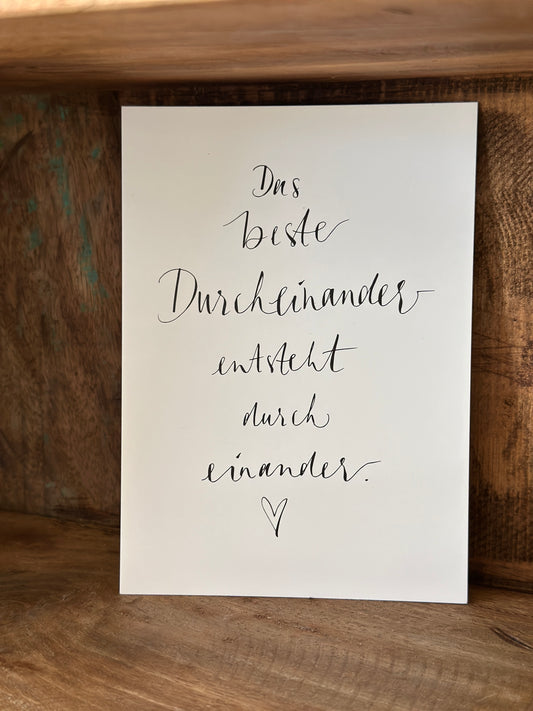 Das
beste
Durcheinander
entsteht
durch
einander.